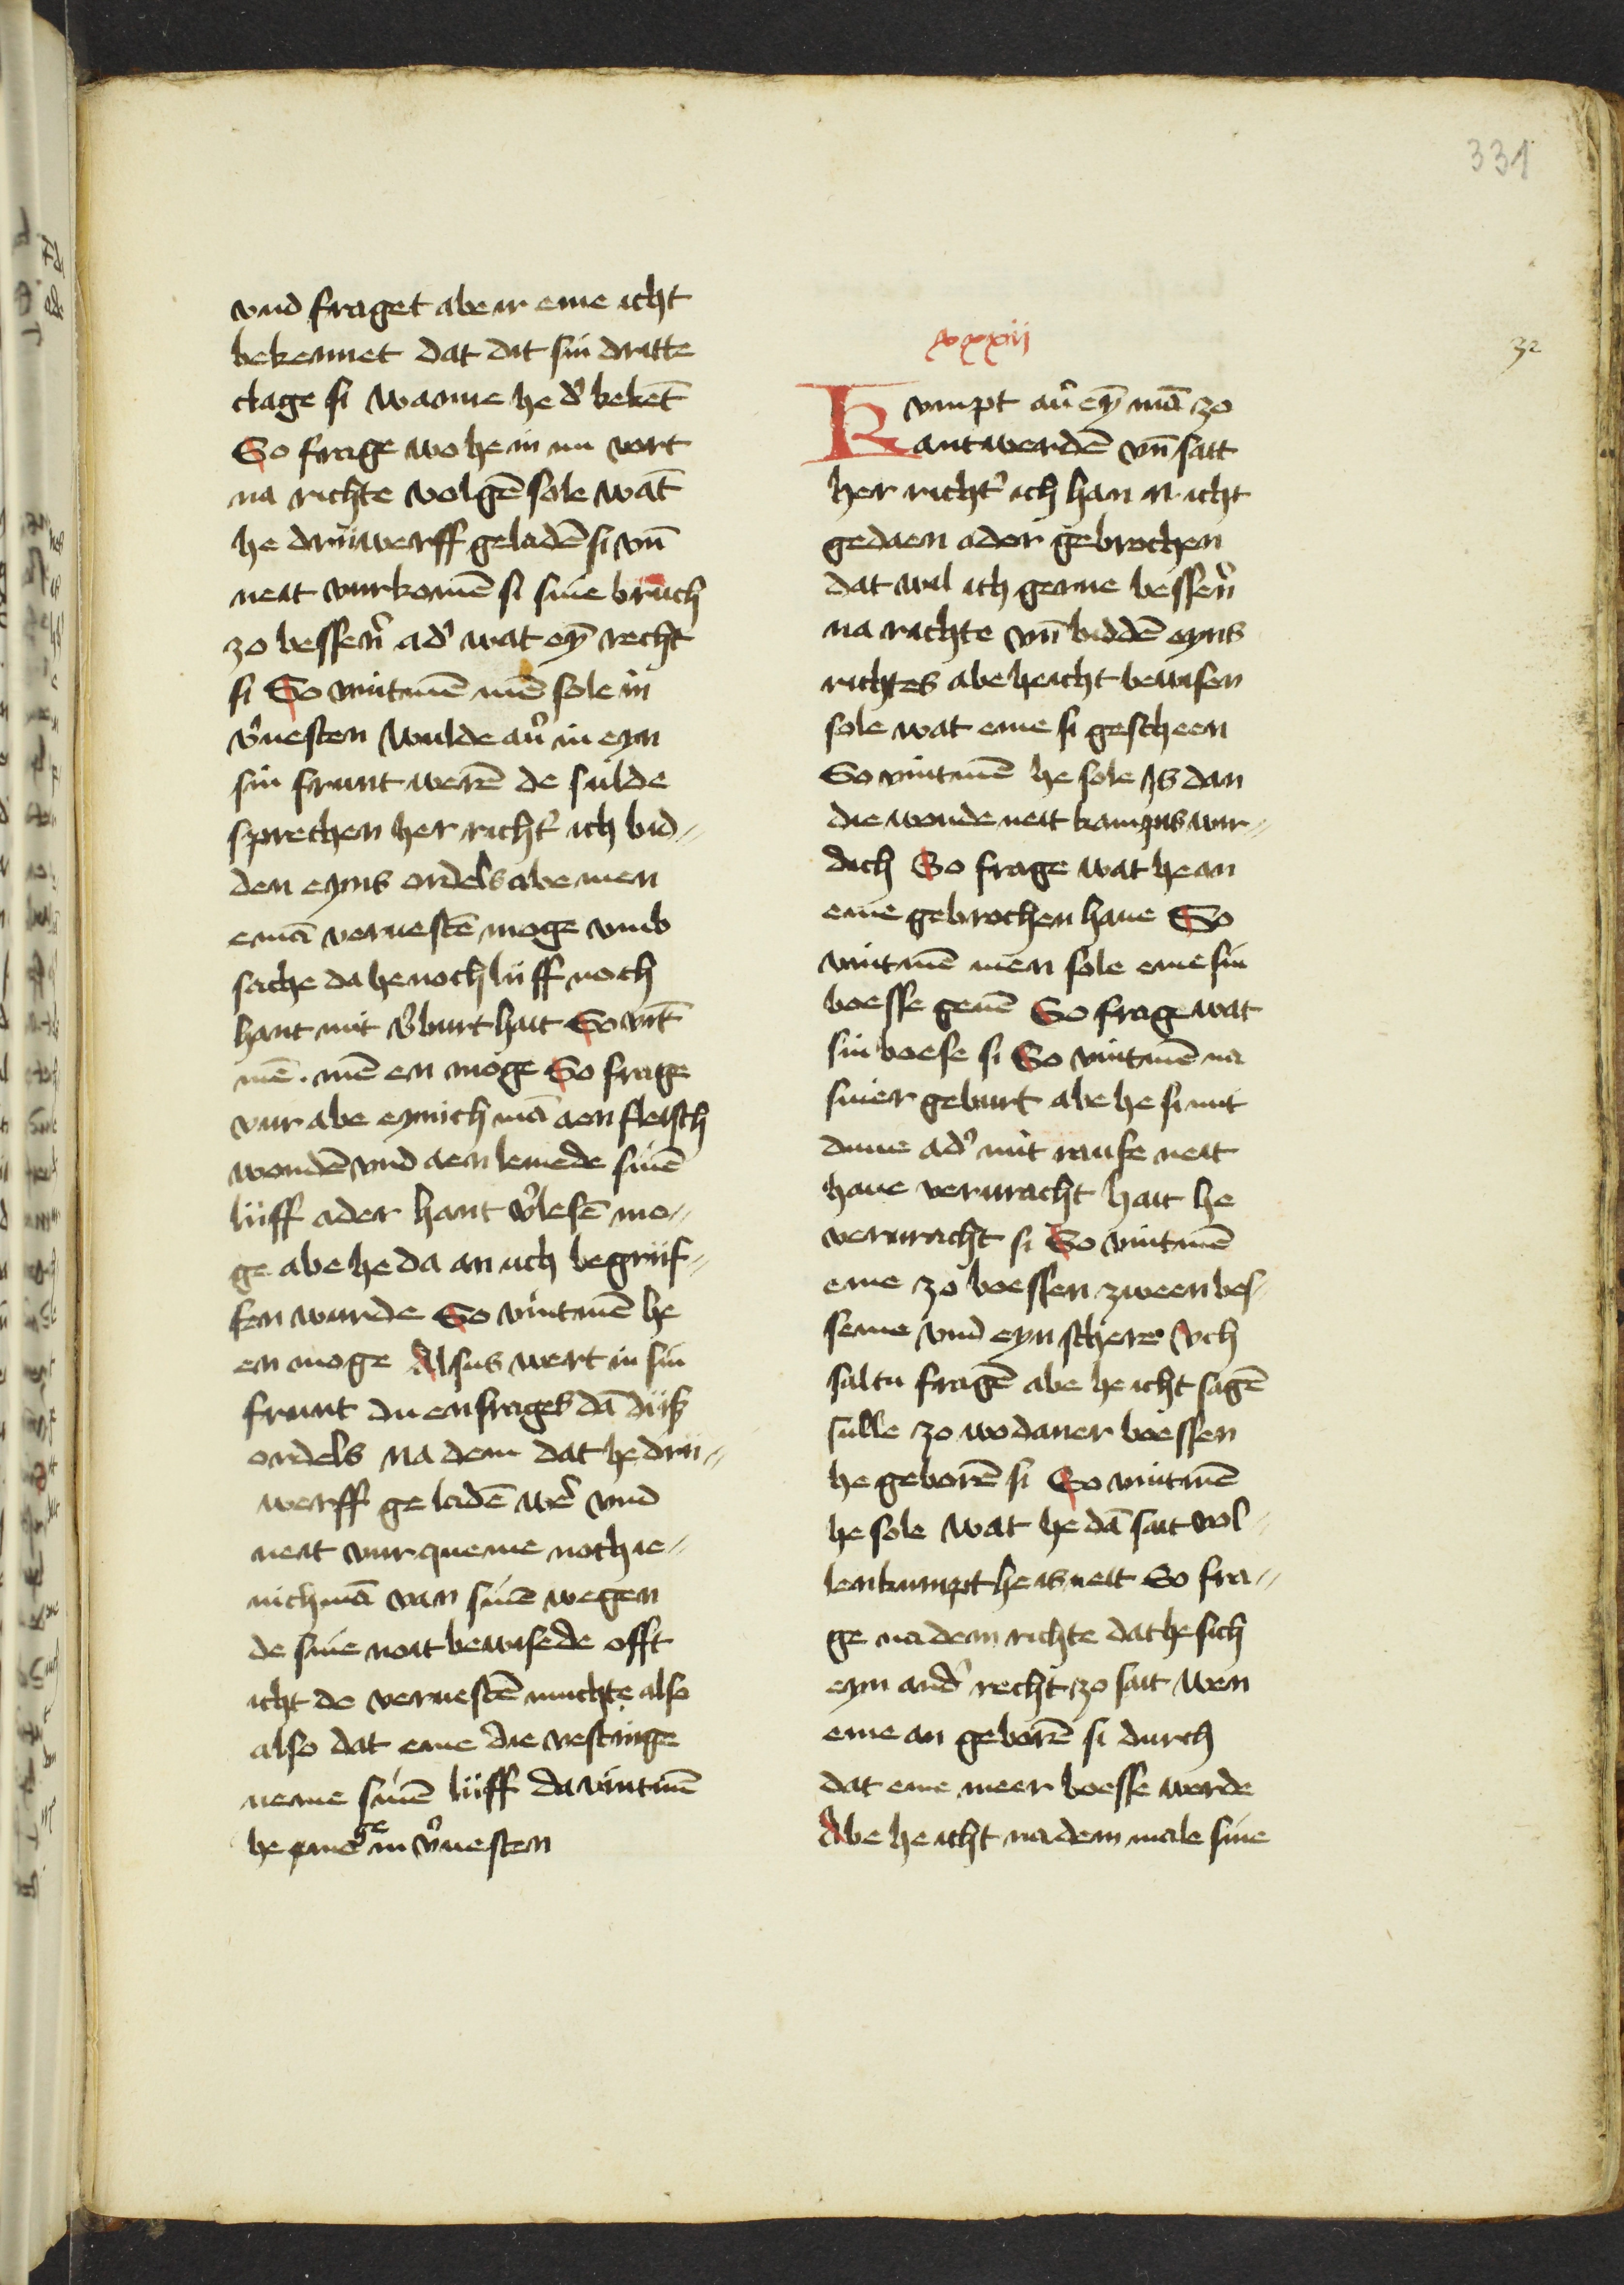 331
vnd fraget abe ir eme icht
bekennet dat dit sin dritte
clage si wanne he d' bekēt
So frage wo he in nu vort
na richte volgē sole wāt
he druwerff geladē si vn̄
neit vurkomē si sine bruch
zo bessern̄ ad' wat eyn̄ recht
si So vintmē mē sole in
v'uesten wulde au' in eyn
sin frunt werē de sulde
sprechen her richt' ich bid-
den eyns ordels abe men
emā veruestē moge vmb
sache da he noch lüff noch
hant mit v'burt hait So vīt
mē . mē en moge So frage
vur abe eynich mā aen fleisch
wondē vnd aen lemede sinē
lüff ader hant v'lesē mo-
ge abe he da an uch begrif-
fen wurde So vintmē he
en moge Alsus wert in sin
frunt du enfrages dā düß
ordels na dem dat he dru-
werff geladē wer' vnd
neit vur queme noch ie-
nich mā van sinē wegen
de sine noit bewisede offt
icht de veruestē muchte also
also dat eme die vestinge
neme sinē lüff da vintmē
he en moge in v'uesten
xxxiij
32
Kvmpt au' eyn̄ mā zo
antwerdē vn̄ sait
her richt' ich han N icht
gedaen ader gebrochen
dat wil ich gerne bessern̄
na richte vn̄ biddē eyns
richtes abe he icht bewisen
sole wat eme si gescheen
So vintmē he sole Is dan
die wonde neit kampus wir-
dich So frage wat he an
eme gebrochen haue So
vintmē men sole eme sin
boesse geuē So frage wat
sin boese si So vintmē na
siner geburt abe he si mit
duue ad' mit raufe neit
haue verwracht hait he
verwracht si So vintmē
eme zo boessen zween bes-
seme vnd eyn schere Uch
saltu fragē abe he icht sagē
sulle zo wo daner boessen
he geborē si So vintmē
he sole wat he dā sait vol-
lenkumpt he is neit So fra-
ge na dem richte dat he sich
eyn and' recht zo sait wen
eme an geborē si durch
dat eme meer boesse werde
Abe he icht na dem male sine